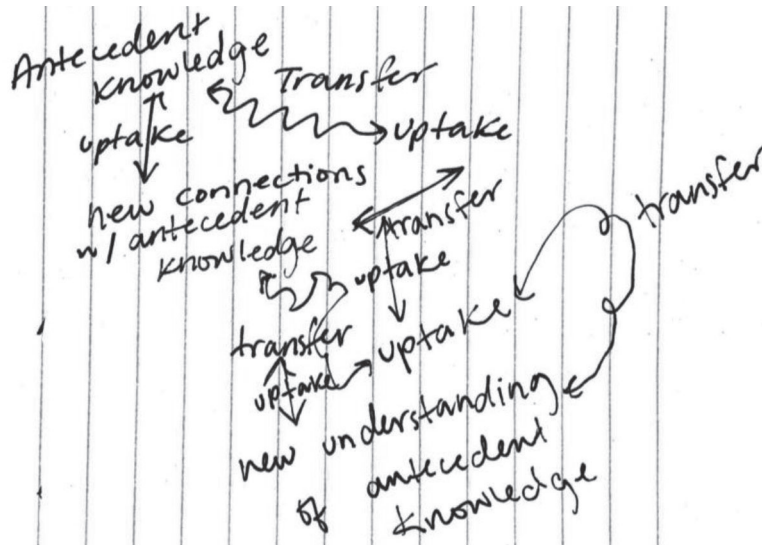 Antecedent
knowledge
Transfer
uptake
uptake
new connections
w/ antecedent
knowledge
transfer
transfer
uptake
transfer
uptake
uptake
new understanding
of antecedent
knowledge